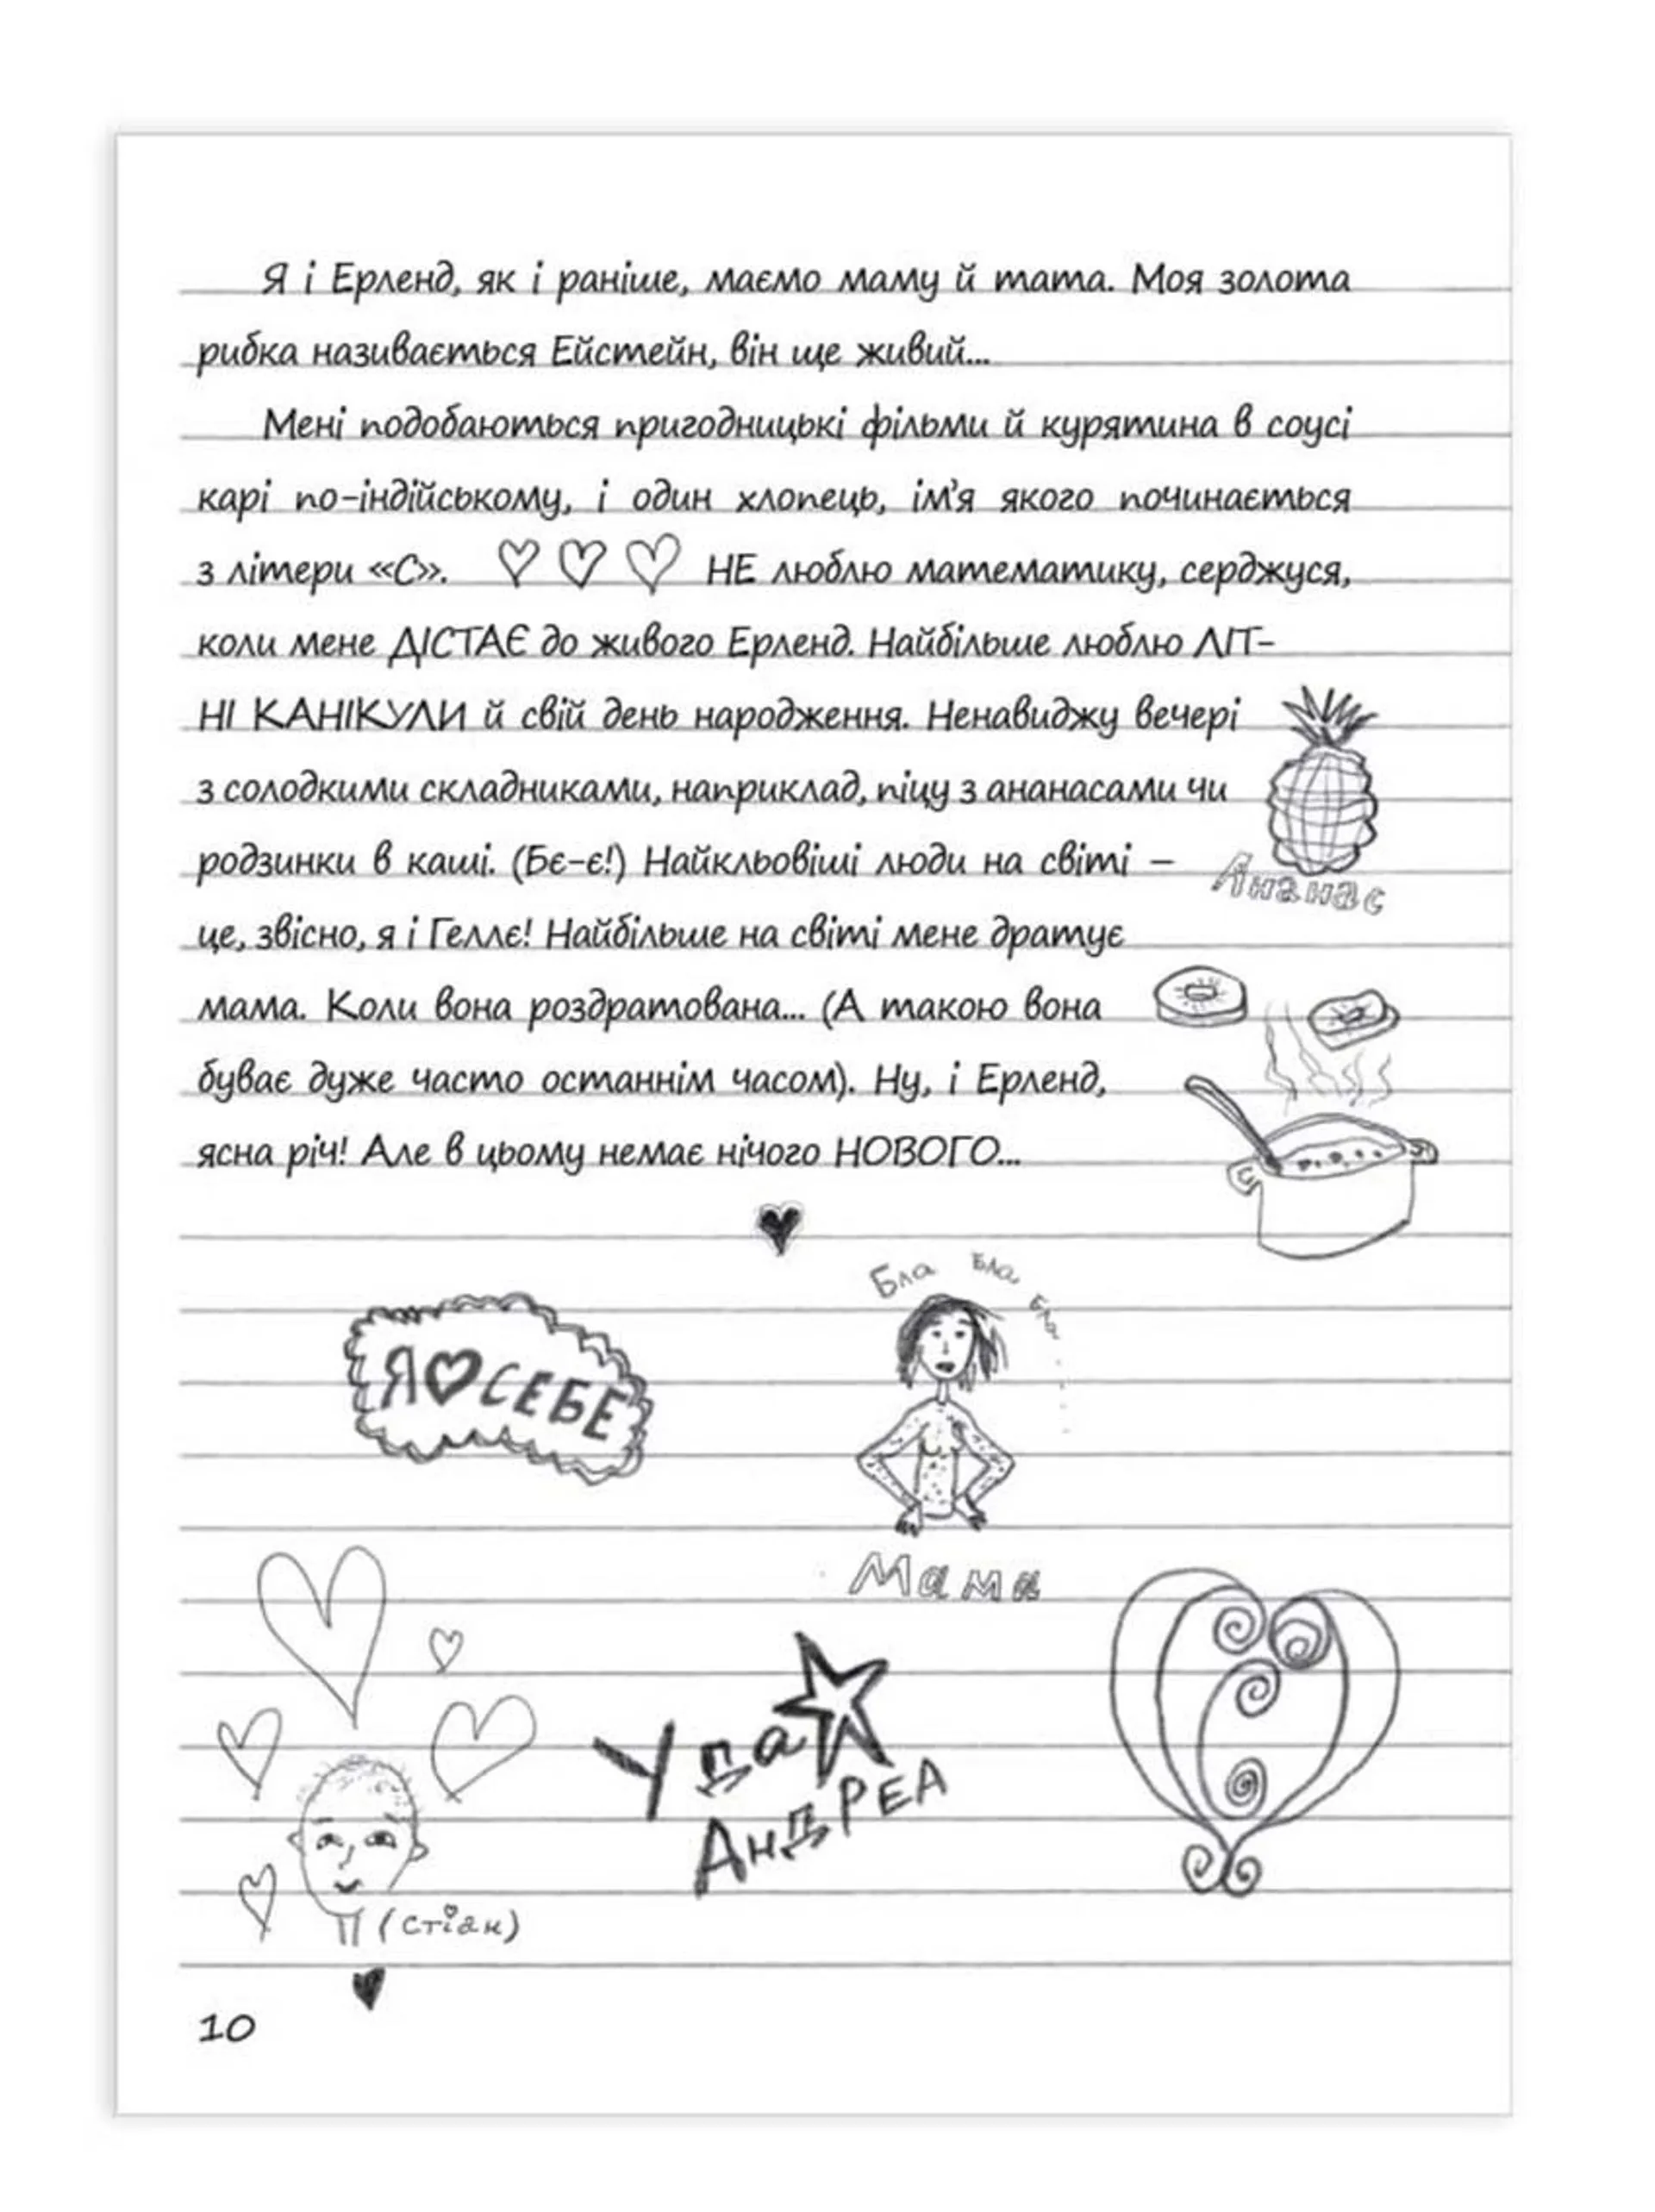 Я і Ерленд, як і раніше, маємо маму й тата. Моя золота
рибка називається Ейстейн, він ще живий...
Мені подобаються пригодницькі фільми й курятина в соусі
карі по-індійському, і один хлопець, ім'я якого починається
з літери «С». НЕ люблю математику, серджуся,
коли мене ДІСТАЄ до живого Ерленд. Найбільше люблю ЛІТ-
НІ КАНІКУЛИ й свій день народження. Ненавиджу вечері
з солодкими складниками, наприклад, піцу з ананасами чи
родзинки в каші. (Бє-є!) Найкльовіші люди на світі –
Ананас
це, звісно, я і Геллє! Найбільше на світі мене дратує
мама. Коли вона роздратована... (А такою вона
буває дуже часто останнім часом). Ну, і Ерленд,
ясна річ! Але в цьому немає нічого НОВОГО...
Бла Бла Бла
Я ♥ СЕБЕ
Мама
Уда
АНДРЕА
(Стіан)
10